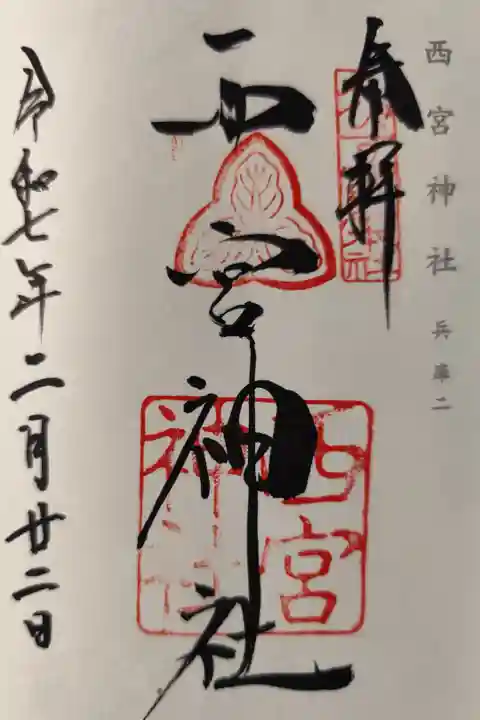 西宮神社 兵庫二
奉拝
西宮神社
西宮
神社
令和七年二月廿二日